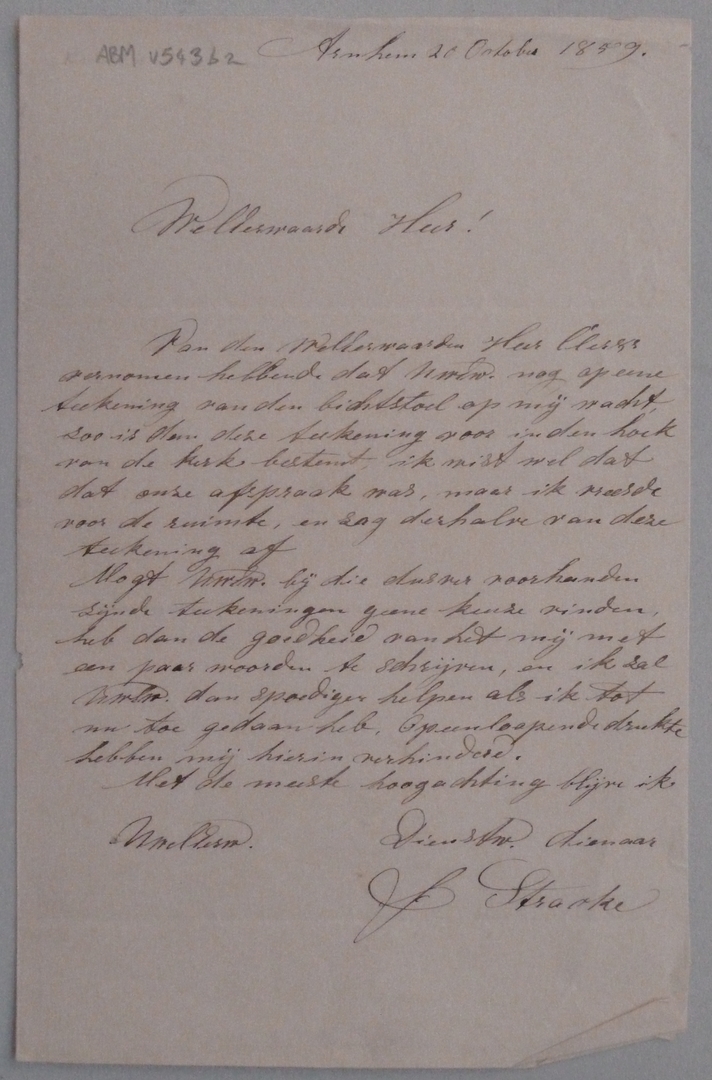 ABM v54362
Arnhem 20 October 1859.
WelEerwaarde Heer!
Van den WelEerwaarden Heer
vernomen hebbende dat UwEw. nog op eene
teekening van den bichtstoel op mij wacht,
zoo is dan deze teekening voor in den hoek
van de kerk bestemt ik wist wel dat
dat onze afspraak was, maar ik vreesde
voor de ruimte, en zag derhalve van deze
teekening af
Mogt UwEw. bij die dusver voorhanden
zijnde teekeningen geene keuze vinden,
heb dan de goedheid van het mij met
een paar woorden te schrijven, en ik zal
UwEw. dan spoediger helpen als ik tot
nu toe gedaan heb, Opeenloopende drukte
hebben mij hierin verhinderd.
Met de meeste hoogachting blijve ik
UwelEerw. Dienstw. dienaar
F Stracke